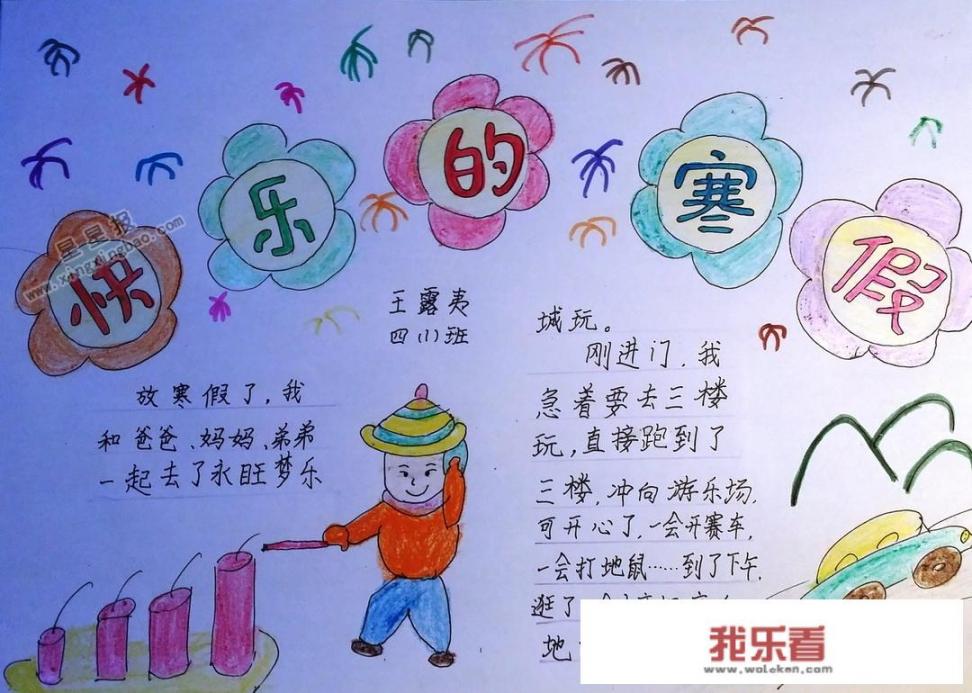 快乐的寒假
星星报
www.xingxingbao.com
王露夷
四(1)班
放寒假了,我
和爸爸、妈妈、弟弟
一起去了永旺梦乐
城玩。
刚进门,我
急着要去三楼
玩,直接跑到了
三楼,冲向游乐场,
可开心了,一会开赛车,
一会打地鼠……到了下午,
逛了一会
地
我乐看
www.woleken.com